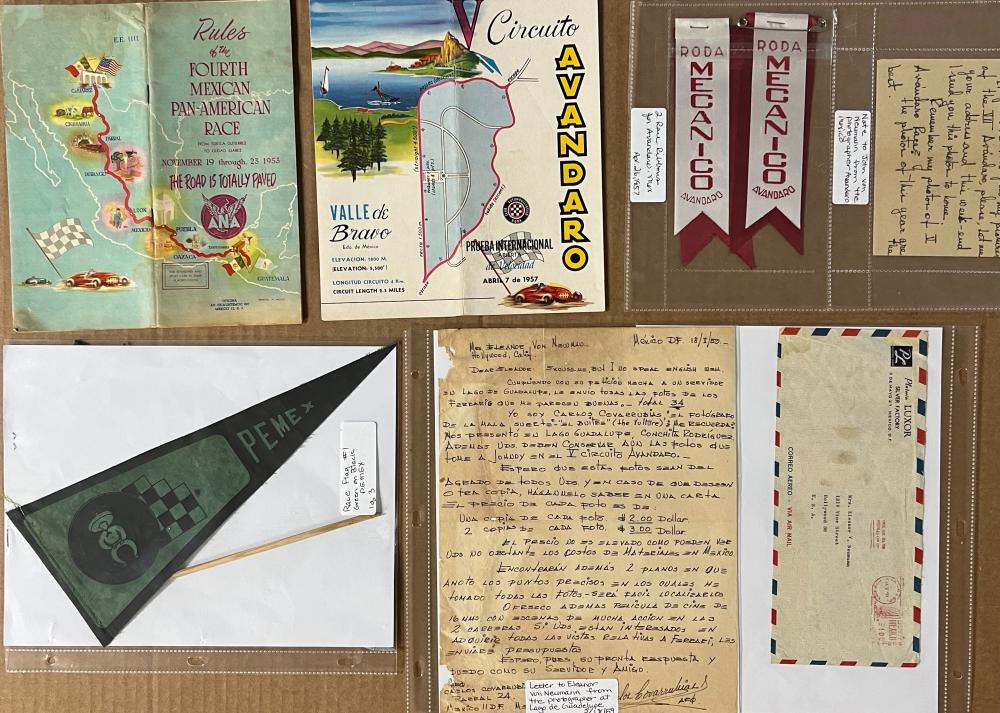 E.E. 1111
Rules
of the
FOURTH
MEXICAN
PAN-AMERICAN
RACE
FROM TUXTLA GUTIERREZ
TO CIUDAD JUAREZ
NOVEMBER 19 through 23 1953
THE ROAD IS TOTALLY PAVED
ANA
CHIHUAHUA
PARRAL
DURANGO
LEON
MEXICO
PUEBLA
OAXACA
GUATEMALA
OFICINA
MEXICO
V Circuito
AVANDARO
VALLE de
Bravo
Edo. de México
ELEVACION: 1800 M.
(ELEVATION: 5,500')
LONGITUD CIRCUITO 4 Km.
CIRCUIT LENGTH 2.5 MILES
PRUEBA INTERNACIONAL
ABIERTA
de Velocidad
ABRIL 7 de 1957
RODA
MECANICO
AVANDARO
RODA
MECANICO
AVANDARO
2 Race Ribbons
for Avandaro, Mex
Apr. 26, 1957
Note to John von
Neumann from the
photographer Avandaro
Mexico
at the VII Avandaro please let me
your address and this week-end
I send you this photo to home.
Remember my photos of II
Avandaro Race?
the photos of this year are the
best.
PEMEX
Race Flag #1
Green on Black
PEMEX
1 of 3
Mrs Eleanore Von Newman
México D.F. 18/X/59.-
Hollywood, Calif.
Dear Eleanore Excuse me, but I no speak english well.
Cumpliendo con su petición hecha a un servidor
en Lago de Guadalupe, le envío todas las fotos de los
Ferraris que me parecen buenas.- Total 34
Yo soy Carlos Covarrubias "el fotógrafo
de la mala suerte"-"el buitre" (the vulture) ¿me recuerda?
Nos presentó en Lago Guadalupe Conchita Rodríguez.
Además Uds. deben conservar aún las fotos que
tomé a Johnny en el V Circuito Avandaro.-
Espero que estas fotos sean del
agrado de todos Uds y en caso de que deseen
otra copia, háganmelo saber en una carta
el precio de cada foto es de:
Una copia de cada foto. $ 2.00 Dollar.
2 copias de cada foto. $ 3.00 Dollar.
El precio no es elevado como pueden ver
Uds no obstante los costos de materiales en México.
Encontrarán además 2 planos en que
anoto los puntos precisos en los cuales he
tomado todas las fotos-será fácil localizarlos
Ofrezco además película de cine de
16 mms con escenas de mucha acción en las
2 carreras. Si Uds. están interesados en
adquirir todas las vistas relativas a Ferrari, les
enviaré presupuesto
Espero, pues, su pronta respuesta y
quedo como su servidor y amigo.
Carlos Covarrubias
24.
México 11 D.F.
Letter to Eleanor
Von Neumann from
the photographer at
Lago de Guadelupe.
Platería LUXOR
SILVER FACTORY
5 DE MAYO
MEXICO, D. F.
CORREO AEREO - VIA AIR MAIL
Mrs. Eleanor V. Neumann
1219 Vine Street
Hollywood 38
U. S. A.